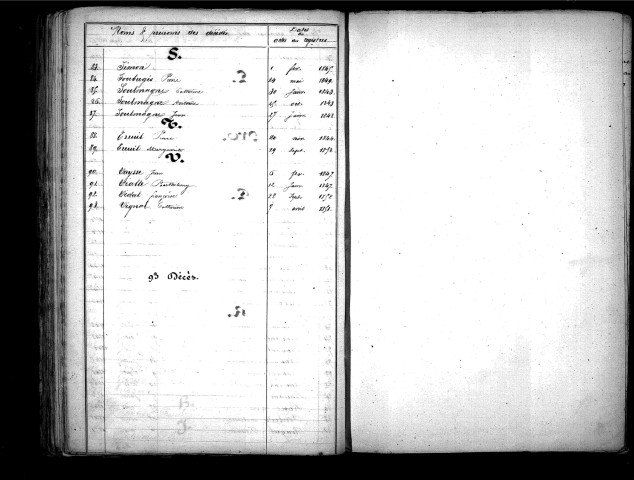 Noms & prénoms des décédés. Dates des actes au registre
S.
83. Simon 1 fév. 1847.
84. Soubugis Pierre 29 mai 1849.
85. Soulmagne Catherine 30 janv. 1843.
86. Soulmagne Antoine 25 oct. 1843
87. Soulmagne Jean 27 janv. 1842.
T.
88. Treuil Pierre 20 nov. 1844.
89. Treuil Marguerite 29 sept. 1852.
V.
90. Vaysse Jean 5 fév. 1847
91. Vialle Barthélemy 12 janv. 1847.
92. Vidal Françoise 28 sept. 1851
93. Vignal Catherine 7 avril 1851.
93 Décès.